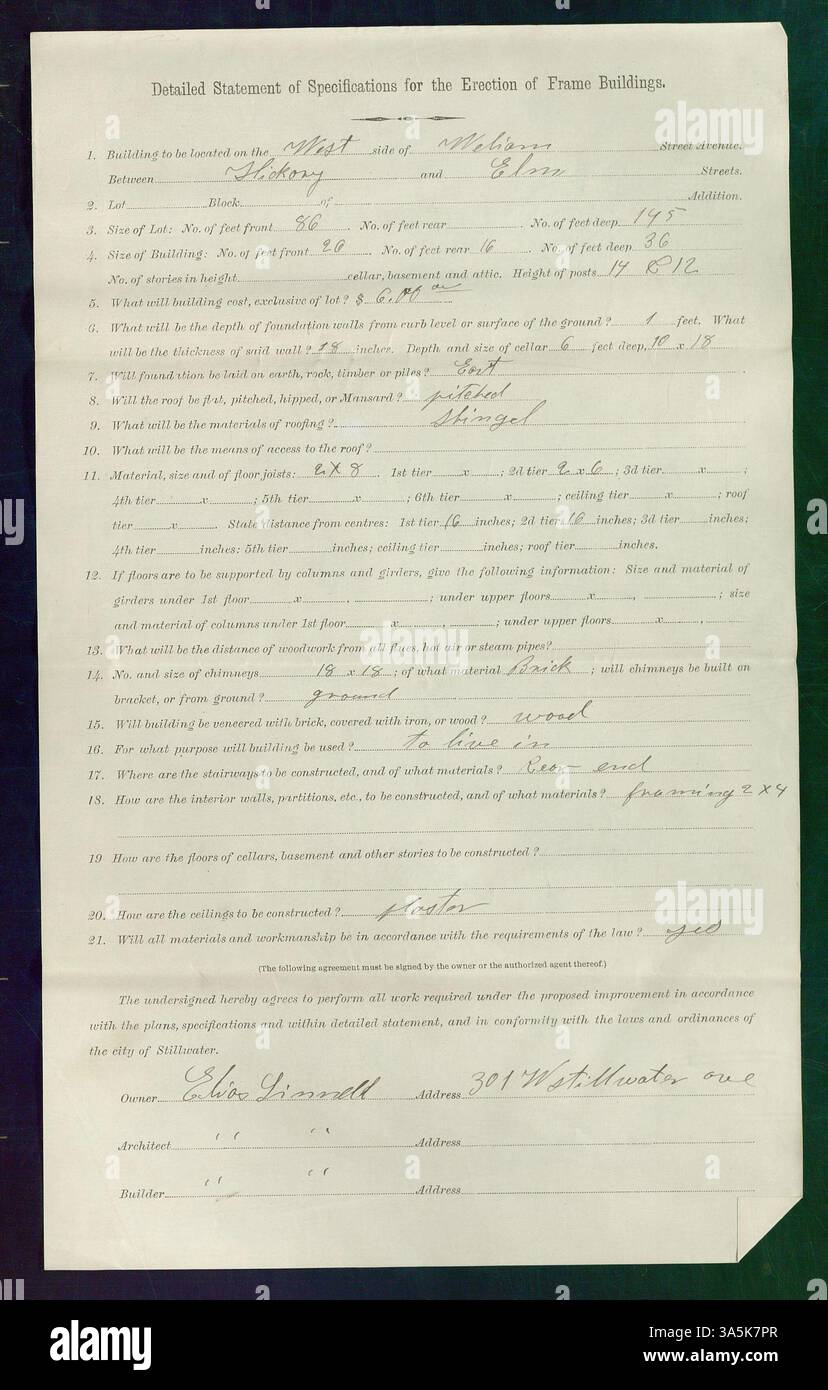 Detailed Statement of Specifications for the Erection of Frame Buildings.
1. Building to be located on the West side of Weliam Street Avenue.
Between Hickory and Elm Streets.
2. Lot Block of Addition.
3. Size of Lot: No. of feet front 86 No. of feet rear No. of feet deep 145
4. Size of Building: No. of feet front 20 No. of feet rear 16 No. of feet deep 36
No. of stories in height cellar, basement and attic. Height of posts 14 & 12
5. What will building cost, exclusive of lot? $ 6.00
6. What will be the depth of foundation walls from curb level or surface of the ground? 1 feet. What
will be the thickness of said wall? 18 inches. Depth and size of cellar 6 feet deep, 10 x 18
7. Will foundation be laid on earth, rock, timber or piles? Eort
8. Will the roof be flat, pitched, hipped, or Mansard? pitched
9. What will be the materials of roofing? Shingel
10. What will be the means of access to the roof?
11. Material, size and of floor joists: 2 X 8 1st tier x ; 2d tier 2 x 6 ; 3d tier x ;
4th tier x ; 5th tier x ; 6th tier x ; ceiling tier x ; roof
tier x . State distance from centres: 1st tier 16 inches; 2d tier 16 inches; 3d tier inches;
4th tier inches: 5th tier inches; ceiling tier inches; roof tier inches.
12. If floors are to be supported by columns and girders, give the following information: Size and material of
girders under 1st floor x , ; under upper floors x , ; size
and material of columns under 1st floor x , ; under upper floors x ,
13. What will be the distance of woodwork from all flues, hot air or steam pipes?
14. No. and size of chimneys 18 x 18 ; of what material Brick ; will chimneys be built on
bracket, or from ground? ground
15. Will building be veneered with brick, covered with iron, or wood? wood
16. For what purpose will building be used? to live in
17. Where are the stairways to be constructed, and of what materials? Rear end
18. How are the interior walls, partitions, etc., to be constructed, and of what materials? framing 2 X 4
19 How are the floors of cellars, basement and other stories to be constructed?
20. How are the ceilings to be constructed? plaster
21. Will all materials and workmanship be in accordance with the requirements of the law? yes
(The following agreement must be signed by the owner or the authorized agent thereof.)
The undersigned hereby agrees to perform all work required under the proposed improvement in accordance
with the plans, specifications and within detailed statement, and in conformity with the laws and ordinances of
the city of Stillwater.
Owner Elias Linnell Address 301 W stillwater ave
Architect " " Address
Builder " " Address
alamy
3A5K7PR
www.alamy.com